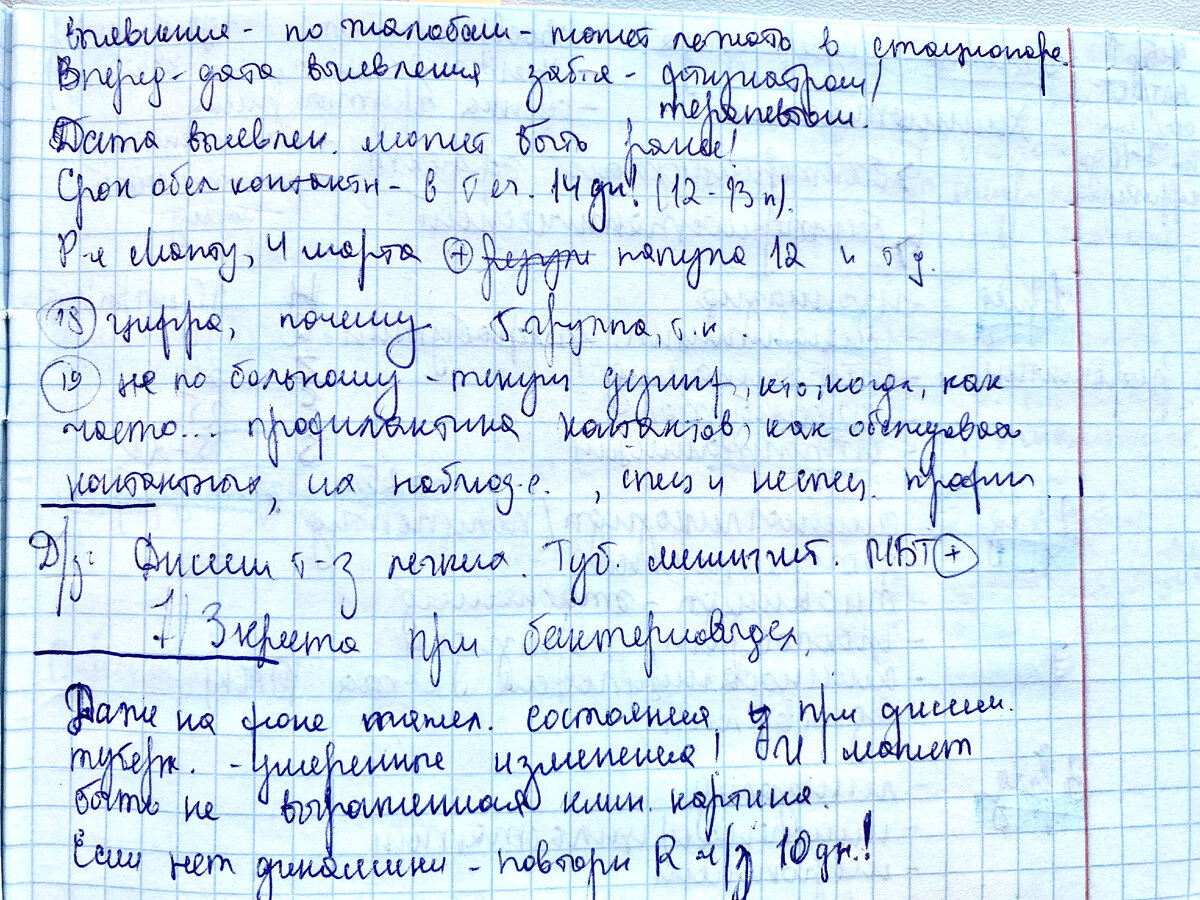 выявления - по жалобам - может лежать в стационаре.
Вперед - дата выявления забтя - фтизиатром/
терапевтом.
Дата выявлен. может быть ранее!
Срок обсл контактн - в теч. 14 дн! (12-13 п).
Р-я Манту, 4 марта + папула 12 и тд.
18 цифра, почему 5 группа, т.к.
19 не по больному - текущ дезинф, кто, когда, как
часто... профилактика контактов, как обследовал
контактных, на наблюд-е, спец и неспец. профил
Д/з: Диссем т-з легких. Туб. менингит. МБТ +
1) 3 креста при бактериовыдел,
Даже на фоне тяжел. состояния, при диссем.
туберк. - умеренные изменения! И может
быть не выраженная клин. картина.
Если нет динамики - повторн R ч/з 10 дн.!